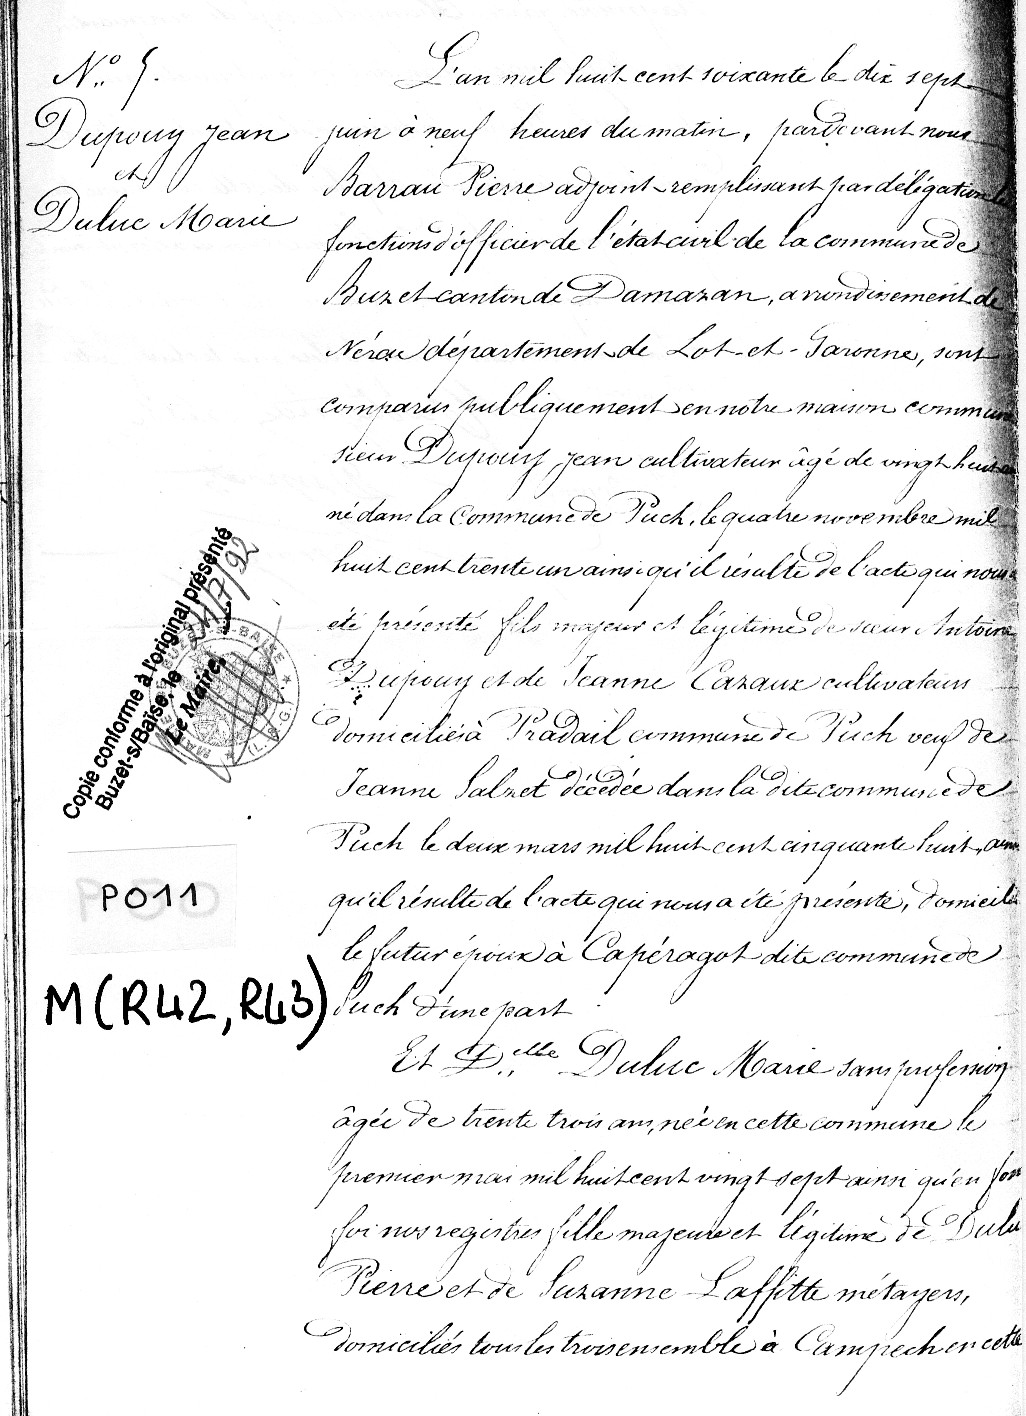 N.o 5.
Dupouy Jean
et
Duluc Marie
L'an mil huit cent soixante le dix sept
juin à neuf heures du matin, pardevant nous
Barrau Pierre adjoint remplissant par délégation les
fonctions d'officier de l'état civil de la commune de
Buzet canton de Damazan, arrondissement de
Nérac département de Lot-et-Garonne, sont
comparus publiquement en notre maison commune
sieur Dupouy Jean cultivateur âgé de vingt huit ans
né dans la Commune de Puch, le quatre novembre mil
huit cent trente un ainsi qu'il résulte de l'acte qui nous a
été présenté fils majeur et légitime de sieur Antoine
Dupouy et de Jeanne Cazaux cultivateurs
domiciliés à Pradail commune de Puch veuf de
Jeanne Salzet décédée dans la dite commune de
Puch le deux mars mil huit cent cinquante huit, ainsi
qu'il résulte de l'acte qui nous a été présenté, domicilié
le futur époux à Capéragot dite commune de
Puch d'une part
Et D.elle Duluc Marie sans profession
âgée de trente trois ans, née en cette commune le
premier mai mil huit cent vingt sept ainsi qu'en font
foi nos registres fille majeure et légitime de Duluc
Pierre et de Suzanne Laffitte métayers,
domiciliés tous les trois ensemble à Campech en cette
Copie conforme à l'original présenté
Buzet-s/Baïse, le 21/7/92
Le Maire,
MAIRIE DE BUZET-S-BAISE
(L.&G.)
P011
M(R42, R43)